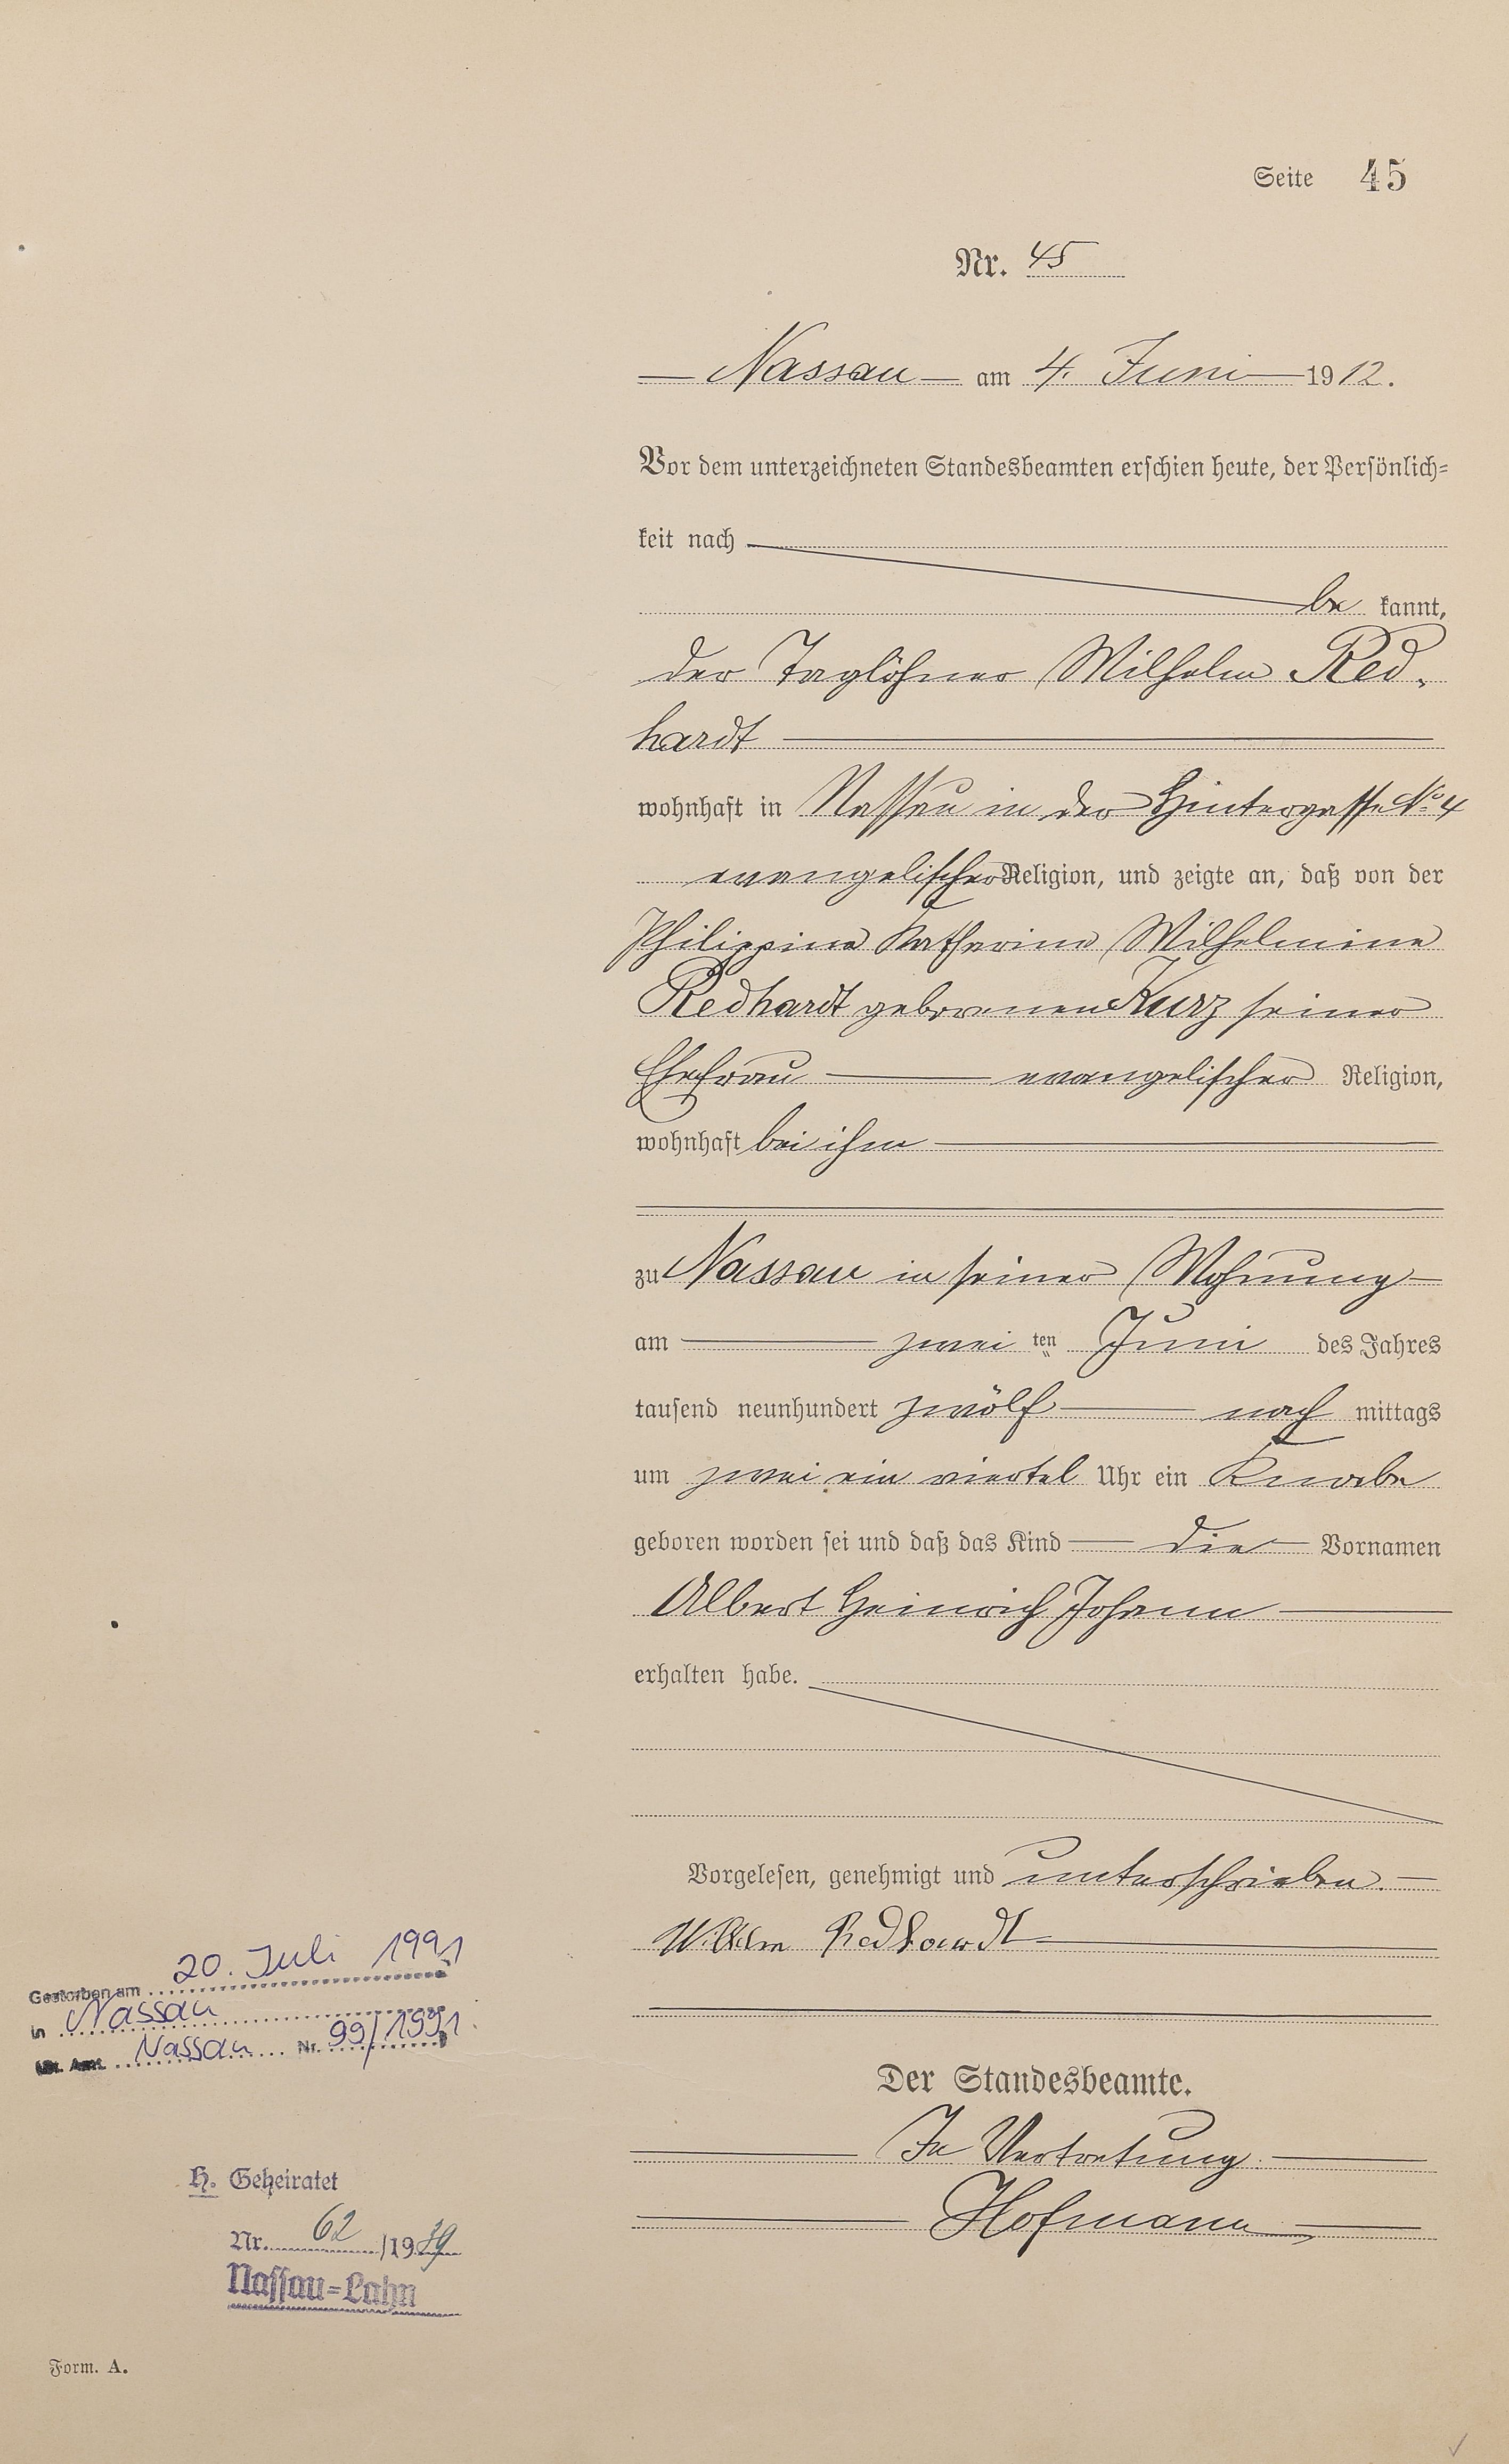 Seite 45
Nr. 45
Nassau am 4. Juni 1912.
Vor dem unterzeichneten Standesbeamten erschien heute, der Persönlich=
keit nach
be kannt,
der Taglöhner Wilhelm Red-
hardt
wohnhaft in Nassau in der Hintergasse No 4
evangelischer Religion, und zeigte an, daß von der
Philippine Katharine Wilhelmine
Redhardt geborenen Kurz seiner
Ehefrau evangelischer Religion,
wohnhaft bei ihm
zu Nassau in seiner Wohnung
am zwei ten Juni des Jahres
tausend neunhundert zwölf nach mittags
um zwei ein viertel Uhr ein Knabe
geboren worden sei und daß das Kind die Vornamen
Albert Heinrich Johann
erhalten habe.
Vorgelesen, genehmigt und unterschrieben.
Wilhelm Redhardt
Der Standesbeamte.
In Vertretung.
Hofmann
Gestorben am 20. Juli 1991
in Nassau
St. Amt. Nassau Nr. 99/1991
H. Geheiratet
Nr. 62 /1939
Nassau=Lahn
Form. A.